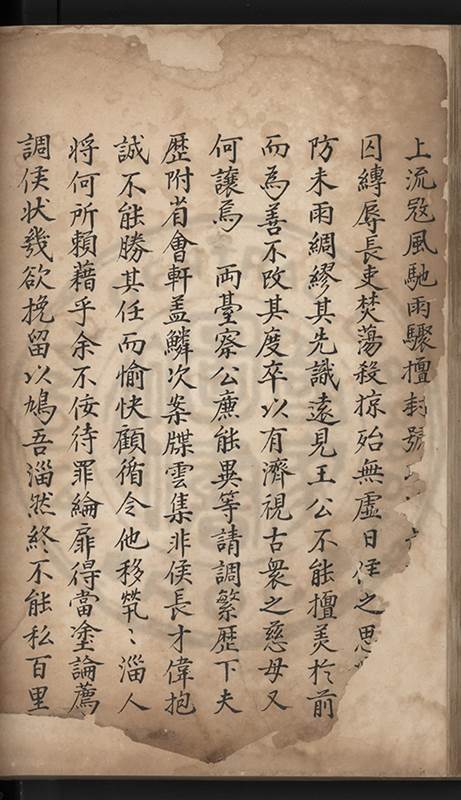 上流寇風馳雨驟擅封號
囚縛辱長吏焚蕩殺掠殆無虛日侯之思
防未雨綢繆其先識遠見王公不能擅美於前
而為善不改其度卒以有濟視古衆之慈母又
何讓焉 兩臺察公廉能異等請調繁歷下夫
歷附省會軒盖鱗次案牒雲集非侯長才偉抱
誠不能勝其任而愉快顧循令他移煢〻淄人
将何所賴藉乎余不佞待罪綸扉得當塗論薦
調侯狀幾欲挽留以鳩吾淄然終不能私百里